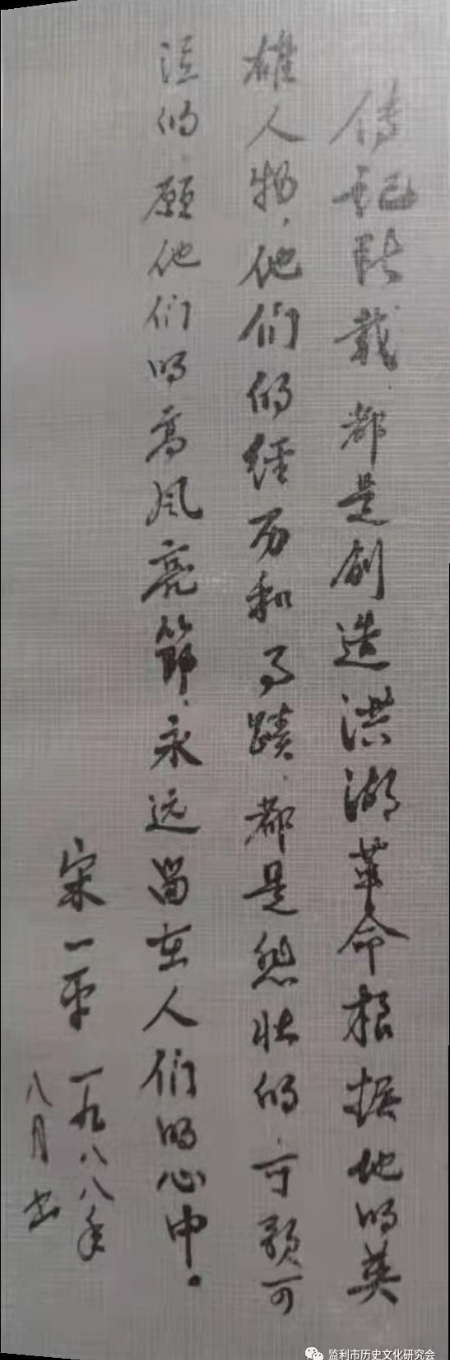 传记所载、都是创造洪湖革命根据地的英
雄人物，他们的经历和事蹟、都是悲壮的、可歌可
泣的、愿他们的高风亮节、永远留在人们的心中。
宋一平 一九八八年
八月书
监利市历史文化研究会